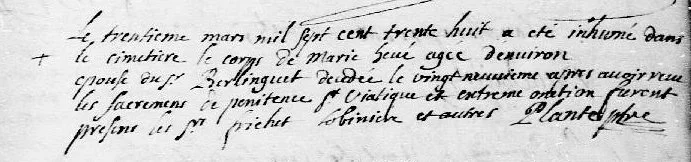 Le trentieme mars mil sept cent trente huit a eté inhumé dans
+ le cimetiere le corps de Marie hevé agee denviron
epouse du Sr Berlinguet decedée le vingt neuvieme apres avoir receu
les sacremens de penitence St Viatique et extreme onction furent
presens les Srs frichet et autres Plante ptre